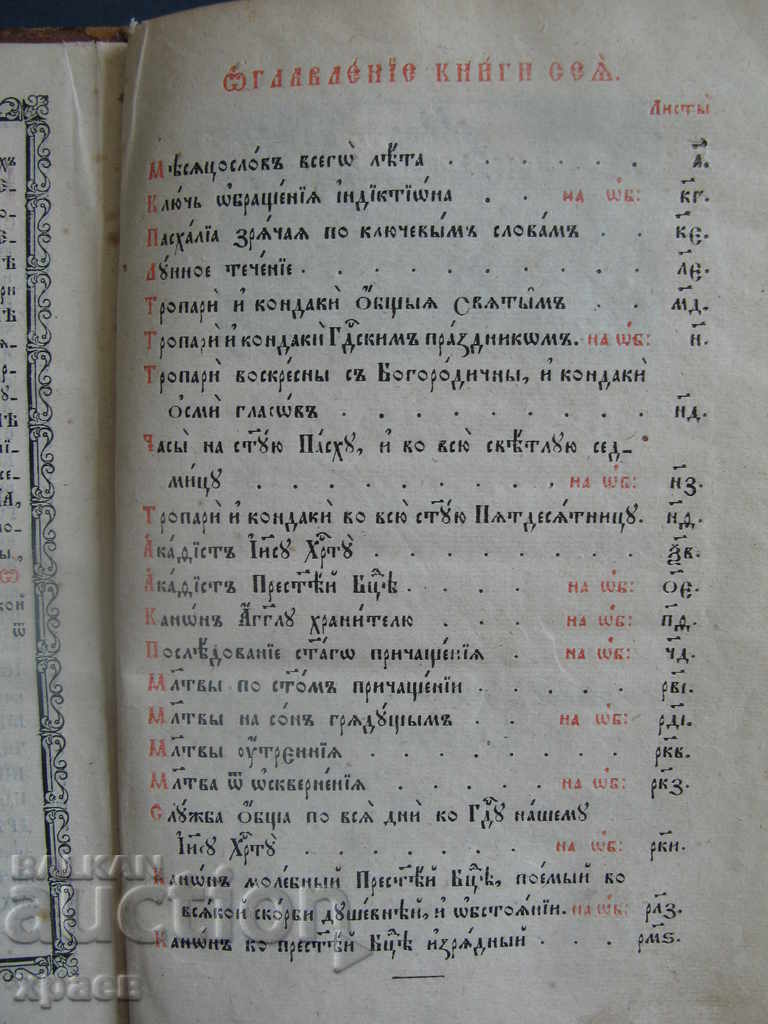 Ѡ҆главле́нїе кни́ги сеѧ̀.
Листы̀
Мѣсѧцосло́въ всегѡ̀ лѣ́та . . . . . . а҃.
Ключь ѡ҆браще́нїѧ і҆ндїктїѡ́на . . на ѡ҆б: кг҃.
Пасха́лїа зрѧ́чаѧ по ключевы̑мъ слова́мъ . . ке҃.
Лу́нное тече́нїе . . . . . . . . ле҃.
Тропарѝ и҆ кондакѝ ѻ҆́бщыѧ свѧты̑мъ . . мд҃.
Тропарѝ и҆ кондакѝ Гдⷭ҇скимъ пра́здникѡмъ. на ѡ҆б: н҃.
Тропарѝ воскре́сны съ Богоро́дичны, и҆ кондакѝ
ѻ҆смѝ гласѡ́въ . . . . . . . . нд҃.
Часы̀ на ст҃у́ю Па́сху, и҆ во всю̀ свѣ́тлую сед-
ми́цу . . . . . . . на ѡ҆б: нз҃.
Тропарѝ и҆ кондакѝ во всю̀ ст҃у́ю Пѧтдесѧ́тницу. нѳ҃.
А҆ка́ѳїстъ І҆и҃су Хрⷭ҇тꙋ̀ . . . . . . . ѯв҃.
А҆ка́ѳїстъ Прест҃ѣ́й Бц҃ѣ . . . . на ѡ҆б: ое҃.
Канѡ́нъ А҆́гг҃лу храни́телю . . . на ѡ҆б: пѳ҃.
Послѣ́дованїе ст҃а́гѡ причаще́нїѧ . на ѡ҆б: чд҃.
Мл҃твы по ст҃о́мъ причаще́нїи . . . . . рві҃.
Мл҃твы на со́нъ грѧду́щымъ . . на ѡ҆б: рді҃.
Мл҃твы ᲂу҆́трєннїѧ . . . . . . . рк҃в.
Мл҃тва ѿ ѡ҆скверне́нїѧ . . . . на ѡ҆б: рк҃з.
Слу́жба ѻ҆́бща по всѧ̑ дни̑ ко Гдⷭ҇у на́шему
І҆и҃су Хрⷭ҇тꙋ̀ . . . . . . . на ѡ҆б: рк҃и.
Канѡ́нъ моле́бный Прест҃ѣ́й Бц҃ѣ, пое́мый во
всѧ́кой ско́рби душе́внѣй, и҆ ѡ҆бстоѧ́нїи. на ѡ҆б: рл҃з.
Канѡ́нъ ко прест҃ѣ́й Бц҃ѣ и҆зрѧ́дный . . . рм҃ѕ.
BALKAN
auction
храев